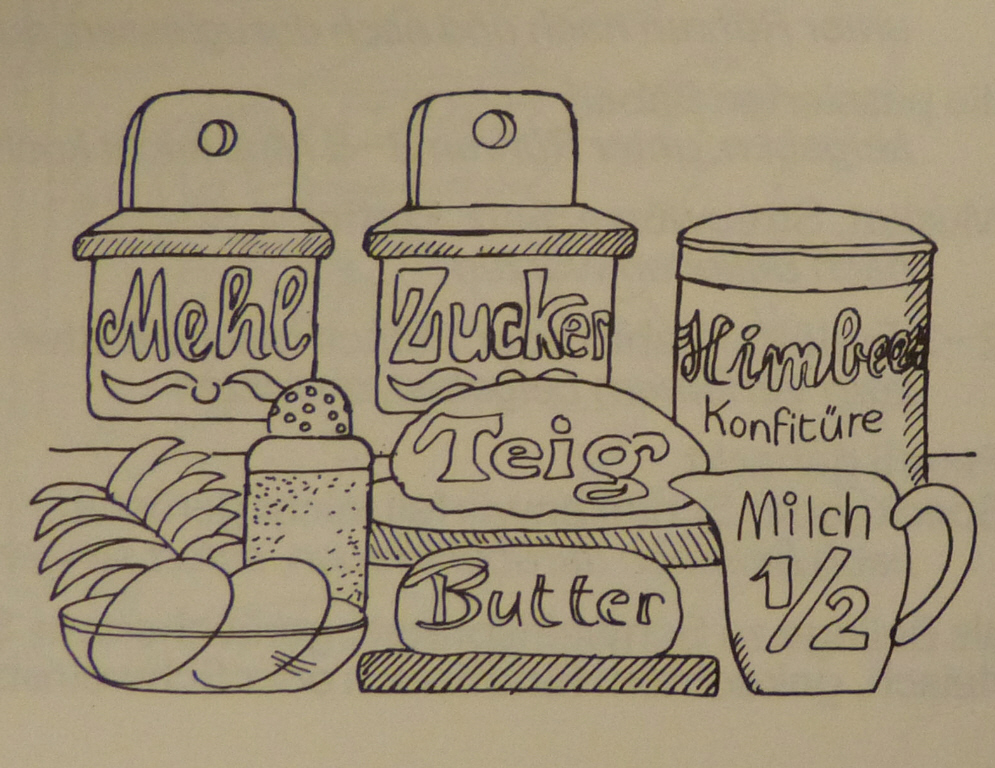 Mehl
Zucker
Himbeer
Konfitüre
Teig
Milch
1/2
Butter